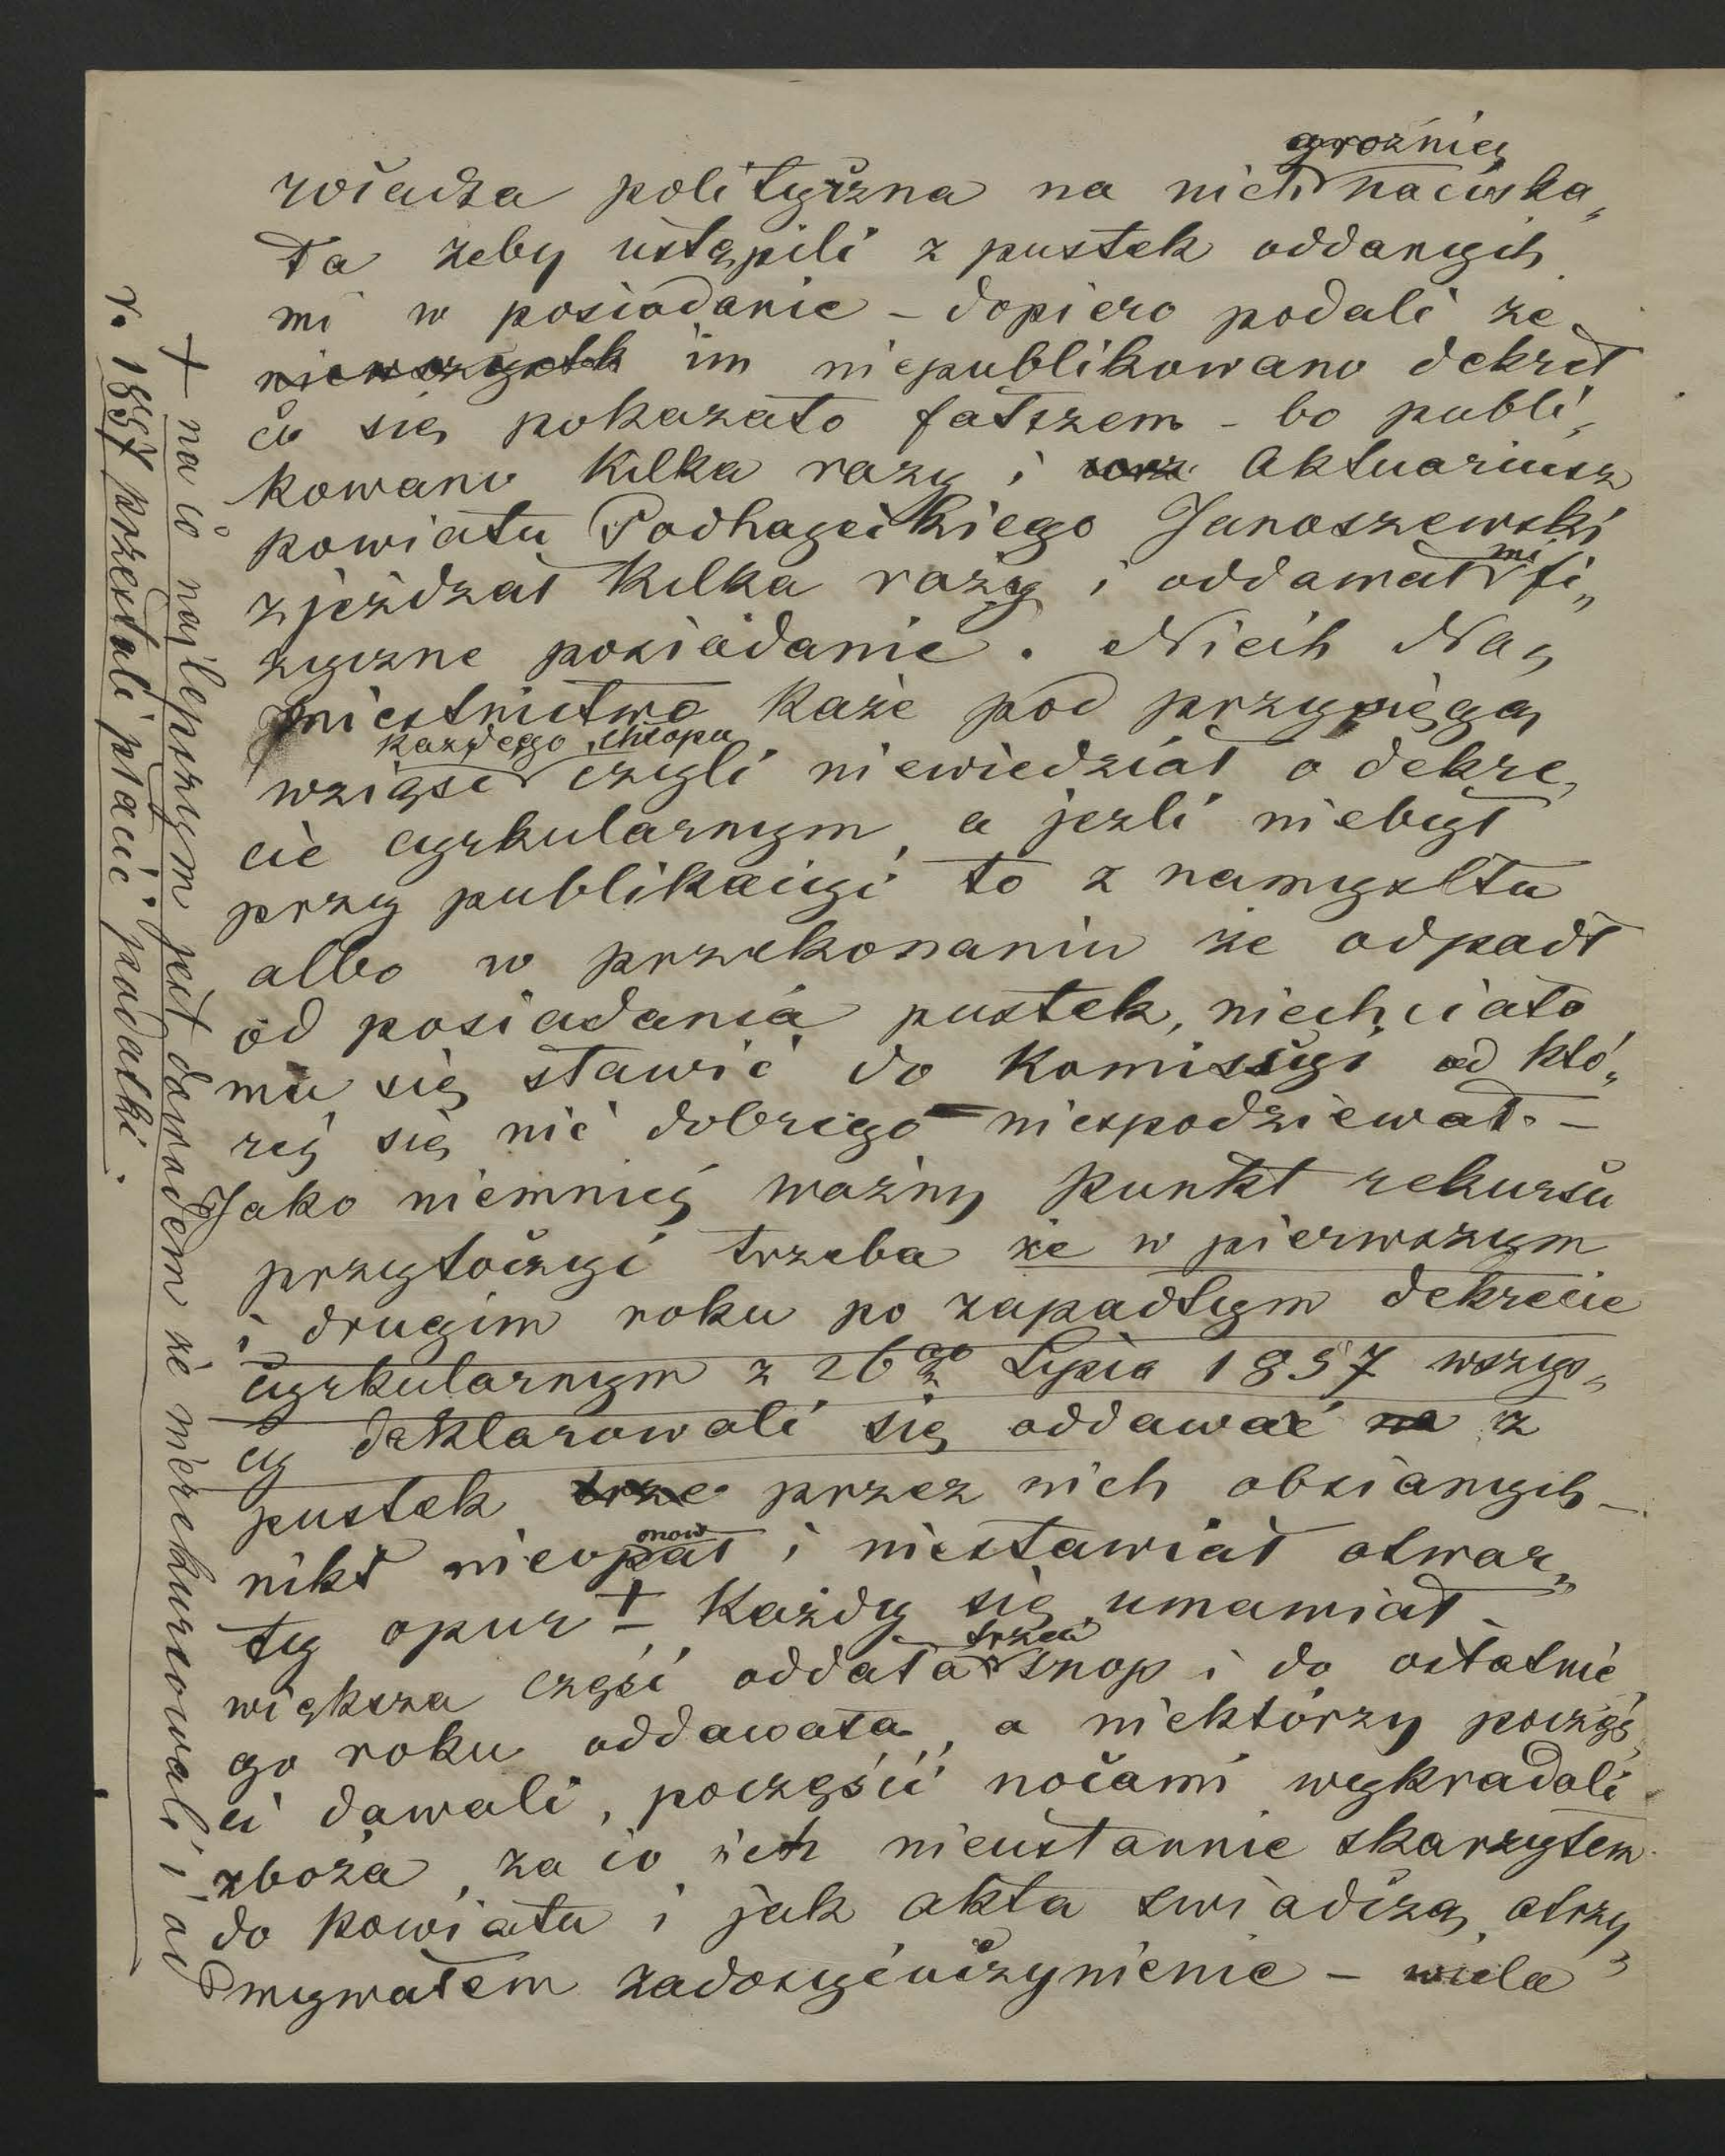 groźnie
władza polityczna na nich naciska„
ła żeby ustąpili z pustek oddanych
mi w posiadanie – dopiero podali że
niewszystk im niepublikowano dekret
co się pokazało fałszem – bo publi„
kowano kilka razy i Aktuariusz
powiatu Podhayeckiego Janoszewski
mi
zjeżdżał kilka razy i oddawał fi„
zyczne posiadanie. Niech Na„
miestnictwo każe pod przysięgą
każdego chłopa
wziąść czyli niewiedział o dekre„
cie cyrkularnym, a jeżli niebył
przy publikacyi to z namysłu
albo w przekonaniu że odpadł
od posiadania pustek, niechciało
mu się stawić do Komissyi od któ„
rej się nic dobrego niespodziewał. –
Jako niemniej ważny punkt rekursu
przytoczyć trzeba że w pierwszym
i drugim roku po zapadłym dekrecie
cyrkularnym z 26go Lipca 1857 wszys„
cy deklarowali się oddawać na z
pustek trze przez nich obsianych –
mow
nikt nieopał i niestawiał otwar„
ty opur + – Każdy się umawiał –
trzeci
większa część oddała snop i do ostatnie„
go roku oddawała, a niektórzy poczęś„
ci dawali, poczęści nocami wykradali
zboża, za co ich nieustannie skarzyłem
do powiatu i jak akta swiadczą, otrzy„
mywałem zadosyćuczynienie – wiela
+ na co najlepszym jest dowodem że nierekurowali i od
r. 1857 przestali płacić podatki.